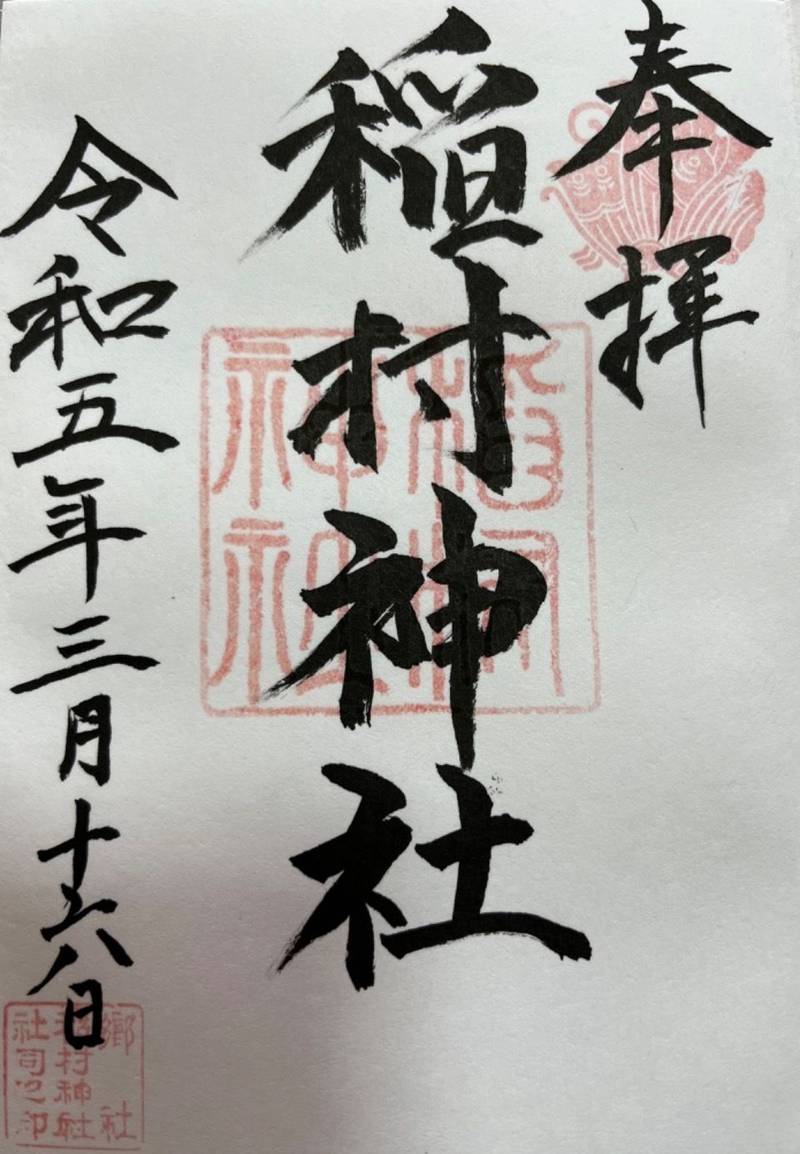 奉拝
稲村神社
令和五年三月十六日
郷社
稲村神社
社司之印